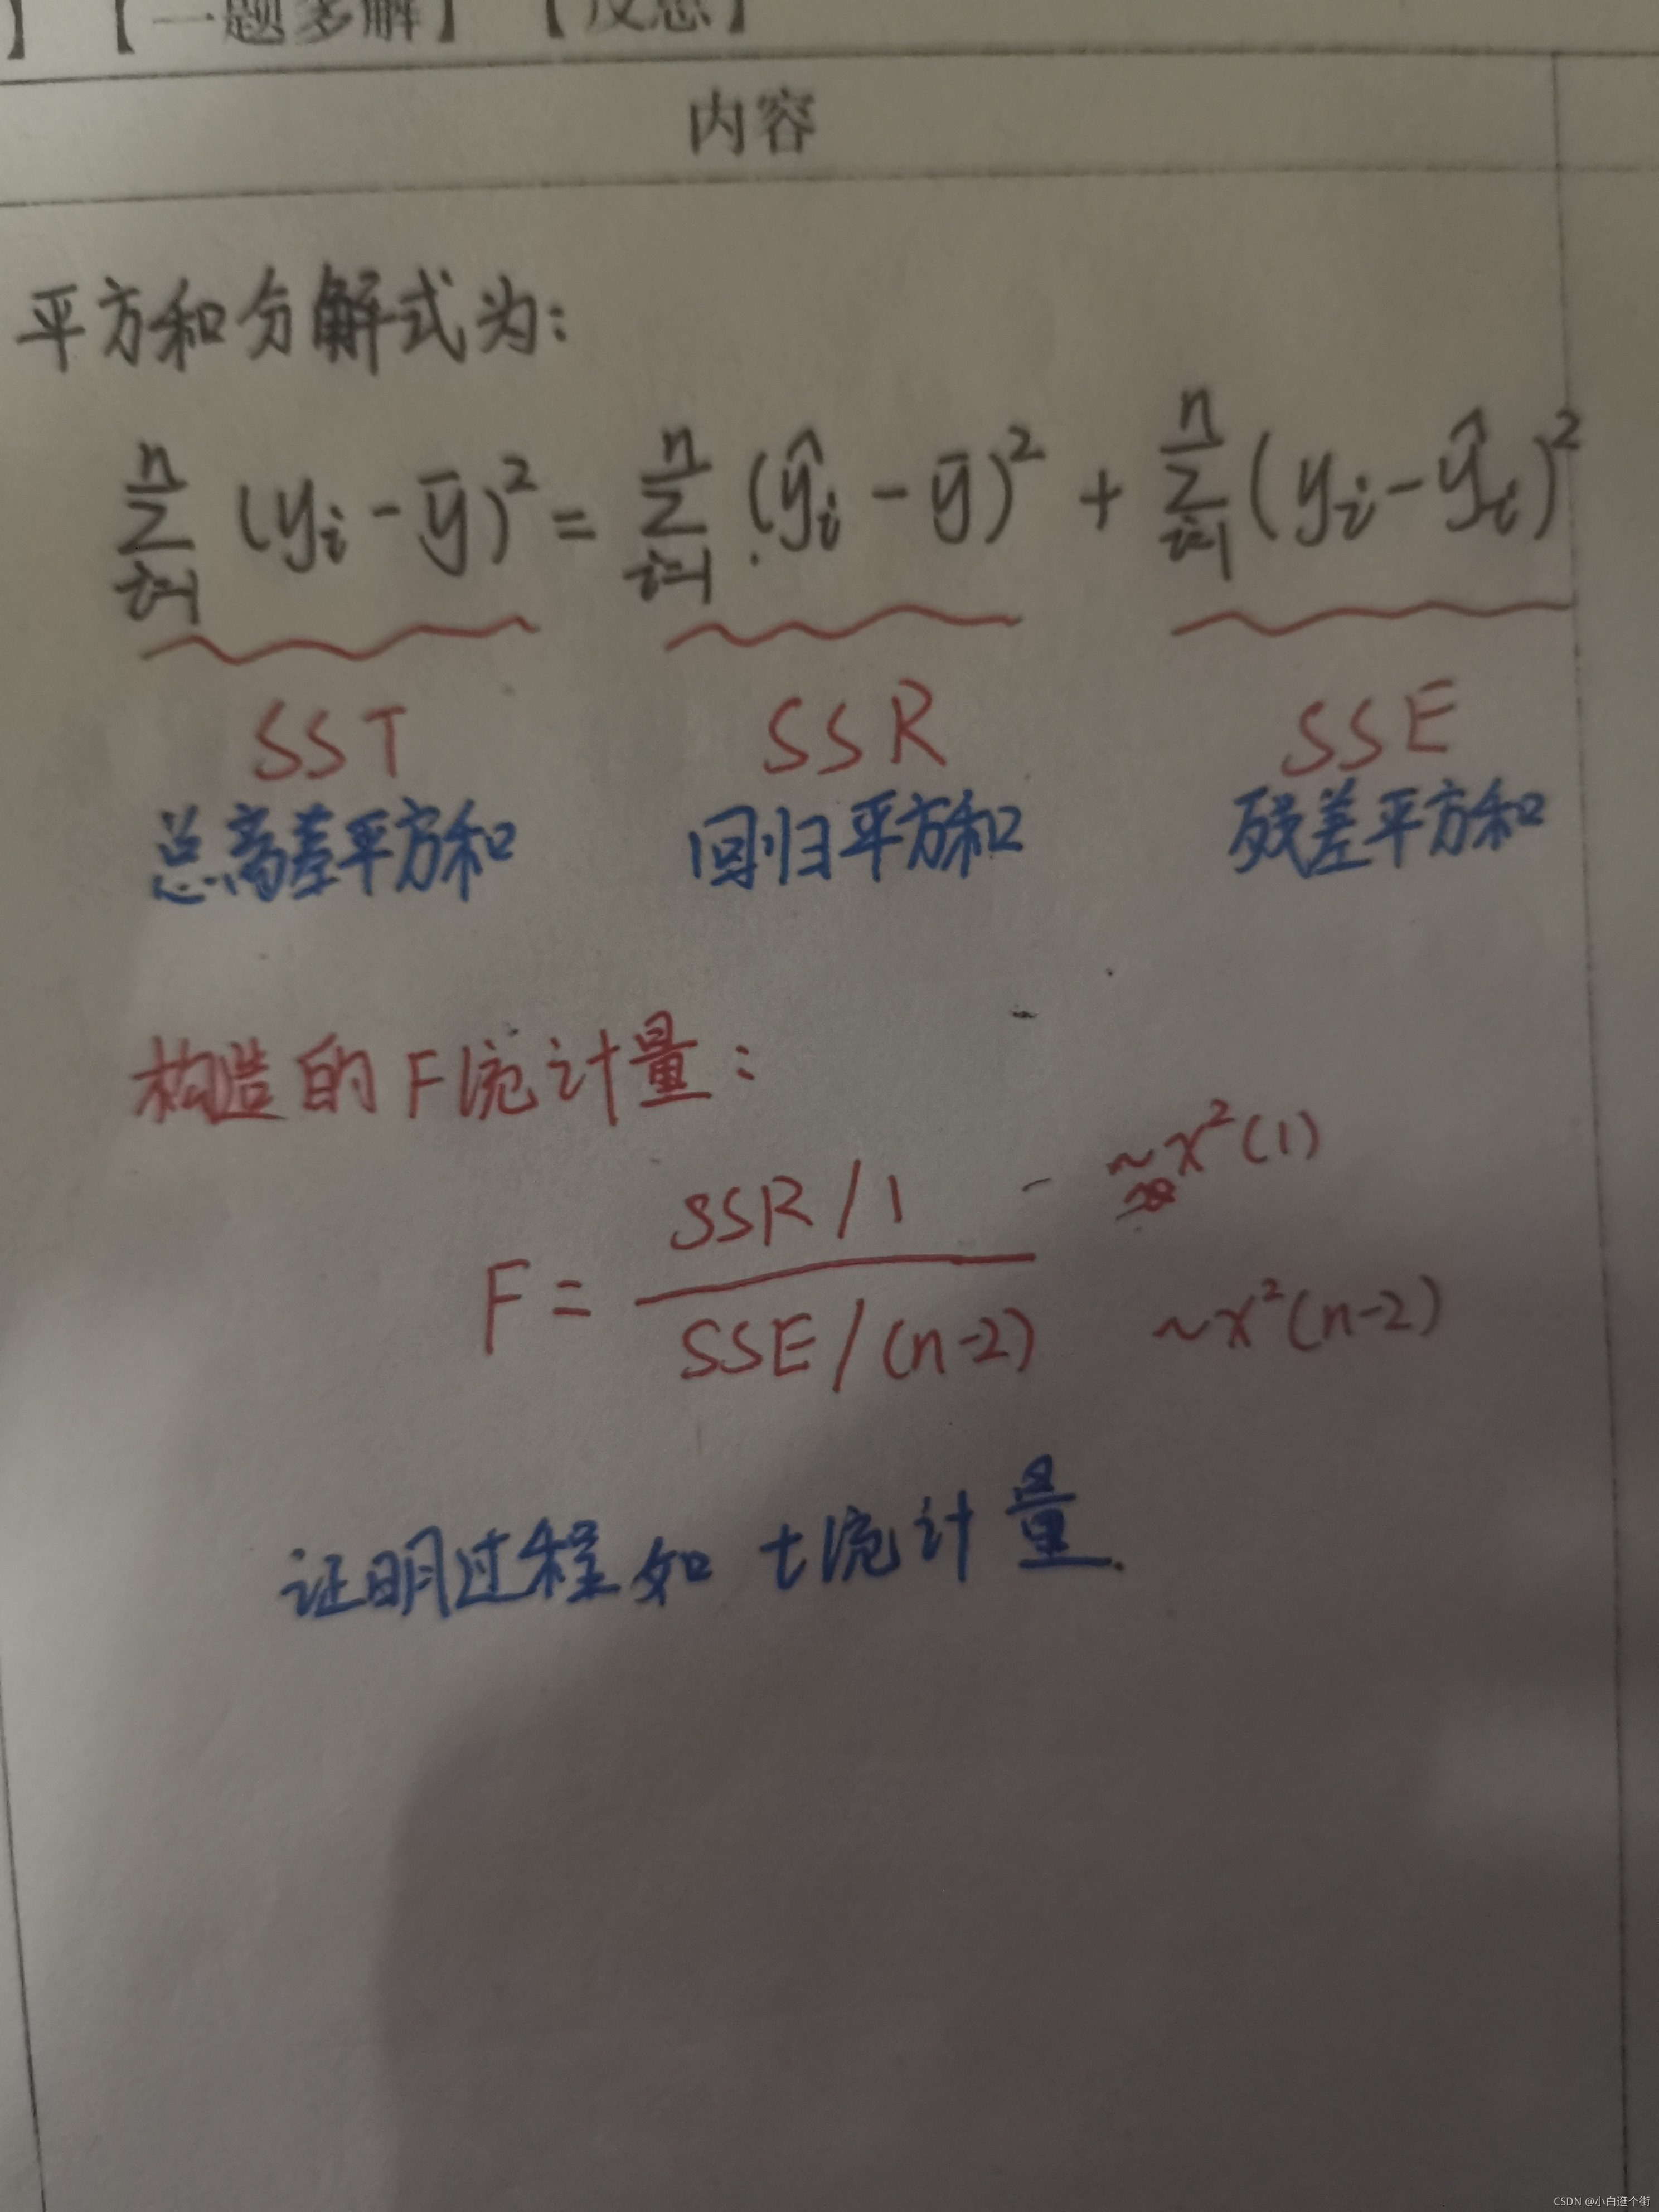 】 【一题多解】 【反思】
内容
平方和分解式为:
\sum_{i=1}^{n} (y_i - \bar{y})^2 = \sum_{i=1}^{n} (\hat{y}_i - \bar{y})^2 + \sum_{i=1}^{n} (y_i - \hat{y}_i)^2
SST SSR SSE
总离差平方和 回归平方和 残差平方和
构造的F统计量:
F = \frac{SSR/1}{SSE/(n-2)} ~χ²(1) ~χ²(n-2)
证明过程如t统计量.
CSDN @小白逛个街